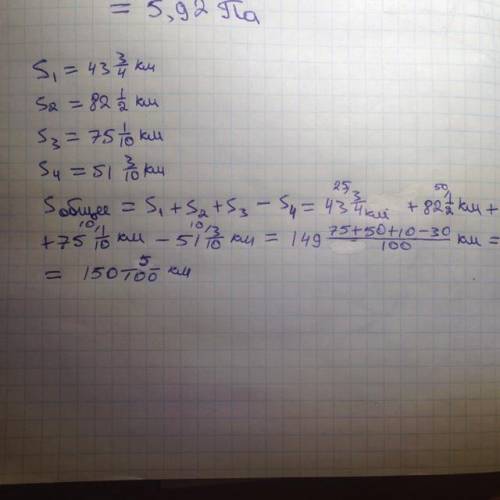 = 5,92 Па
S₁ = 43 3/4 км
S₂ = 82 1/2 км
S₃ = 75 1/10 км
S₄ = 51 3/10 км
Sобщее = S₁ + S₂ + S₃ − S₄ = 43 25/ 3/4 км + 82 50/ 1/2 км +
+ 75 10/ 1/10 км − 51 10/ 3/10 км = 149 (75+50+10−30)/100 км =
= 150 5/100 км